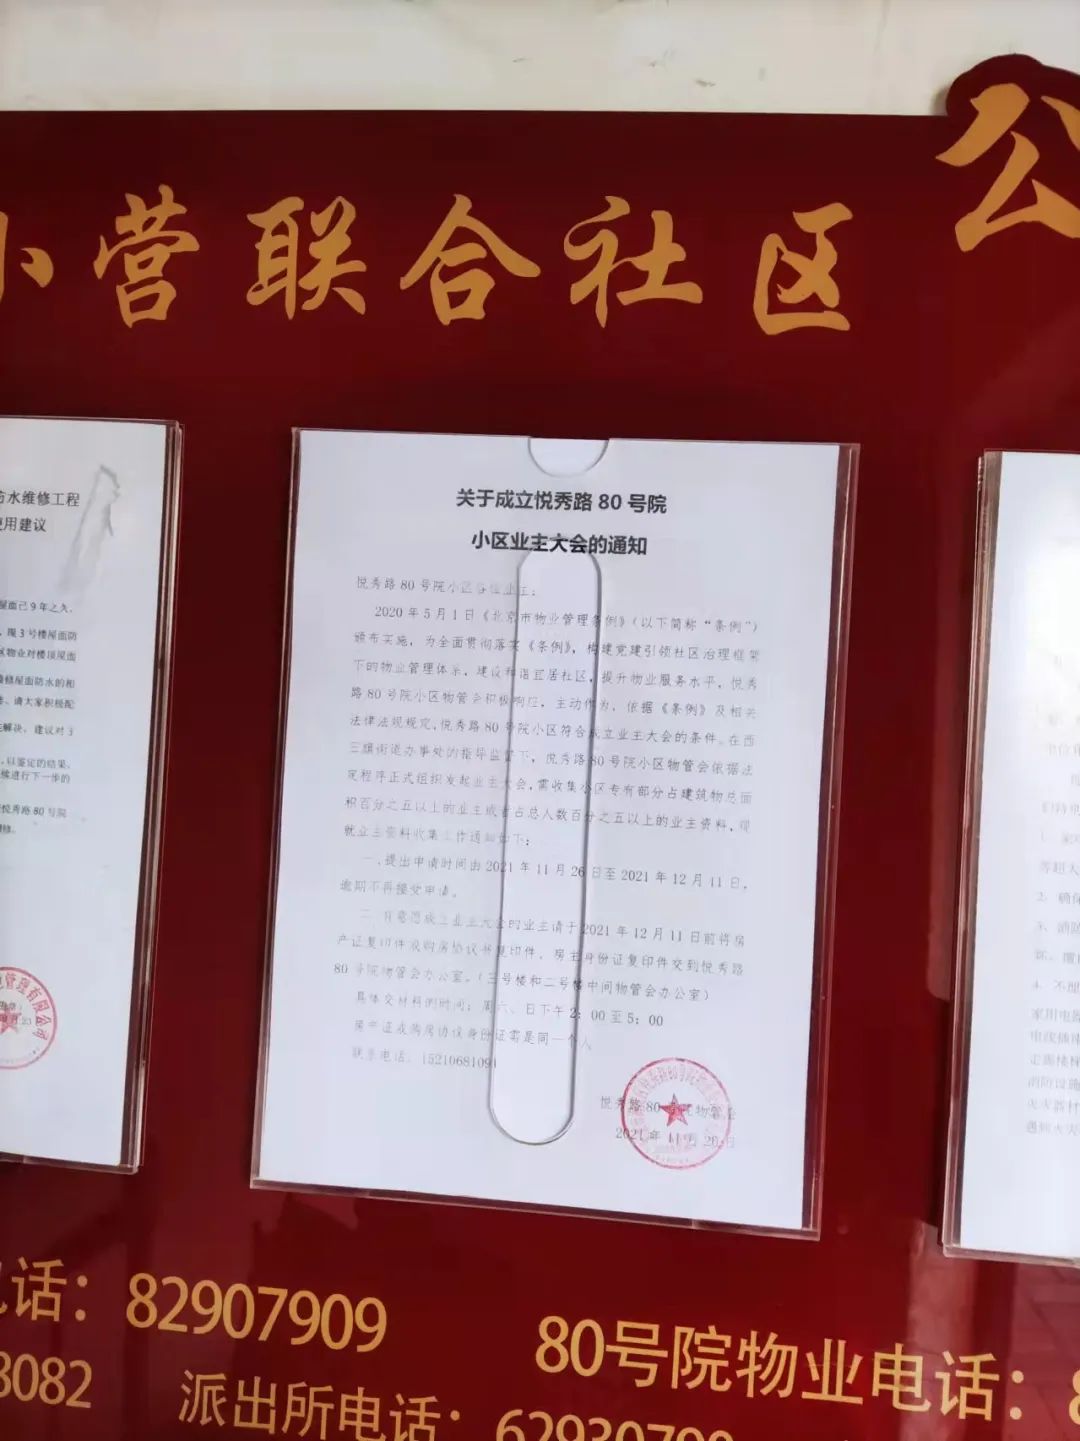 公
小营联合社区
防水维修工程
使用建议
屋面已9年之久，
，现3号楼屋面防
区物业对楼顶屋面
维修屋面防水的相
请大家积极配
解决，建议对3
，以鉴定的结果，
续进行下一步的
悦秀路80号院
关于成立悦秀路80号院
小区业主大会的通知
悦秀路80号院小区各位业主：
2020年5月1日《北京市物业管理条例》（以下简称“条例”）
颁布实施，为全面贯彻落实《条例》，构建党建引领社区治理框架
下的物业管理体系，建设和谐宜居社区，提升物业服务水平，悦秀
路80号院小区物管会积极响应，主动作为，依据《条例》及相关
法律法规规定，悦秀路80号院小区符合成立业主大会的条件。在西
三旗街道办事处的指导监督下，悦秀路80号院小区物管会依据法
定程序正式组织发起业主大会，需收集小区专有部分占建筑物总面
积百分之五以上的业主或者占总人数百分之五以上的业主资料，现
就业主资料收集工作通知如下：
一、提出申请时间由2021年11月26日至2021年12月11日，
逾期不再接受申请。
二、有意愿成立业主大会的业主请于2021年12月11日前将房
产证复印件或购房协议书复印件、房主身份证复印件交到悦秀路
80号院物管会办公室。（三号楼和二号楼中间物管会办公室）
具体交材料例时间：周六、日下午2：00至5：00
房产证或购房协议身份证需是同一个人
联系电话：15210681091
悦秀路80号院物管会
2021年11月26日
管理有限公司
2、确保
3、消防
4、不堆
家用电器
电线插座
走廊楼梯
消防设施
灭火器材
遇到火灾
电话：82907909
80号院物业电话：8
8082
派出所电话：62930790